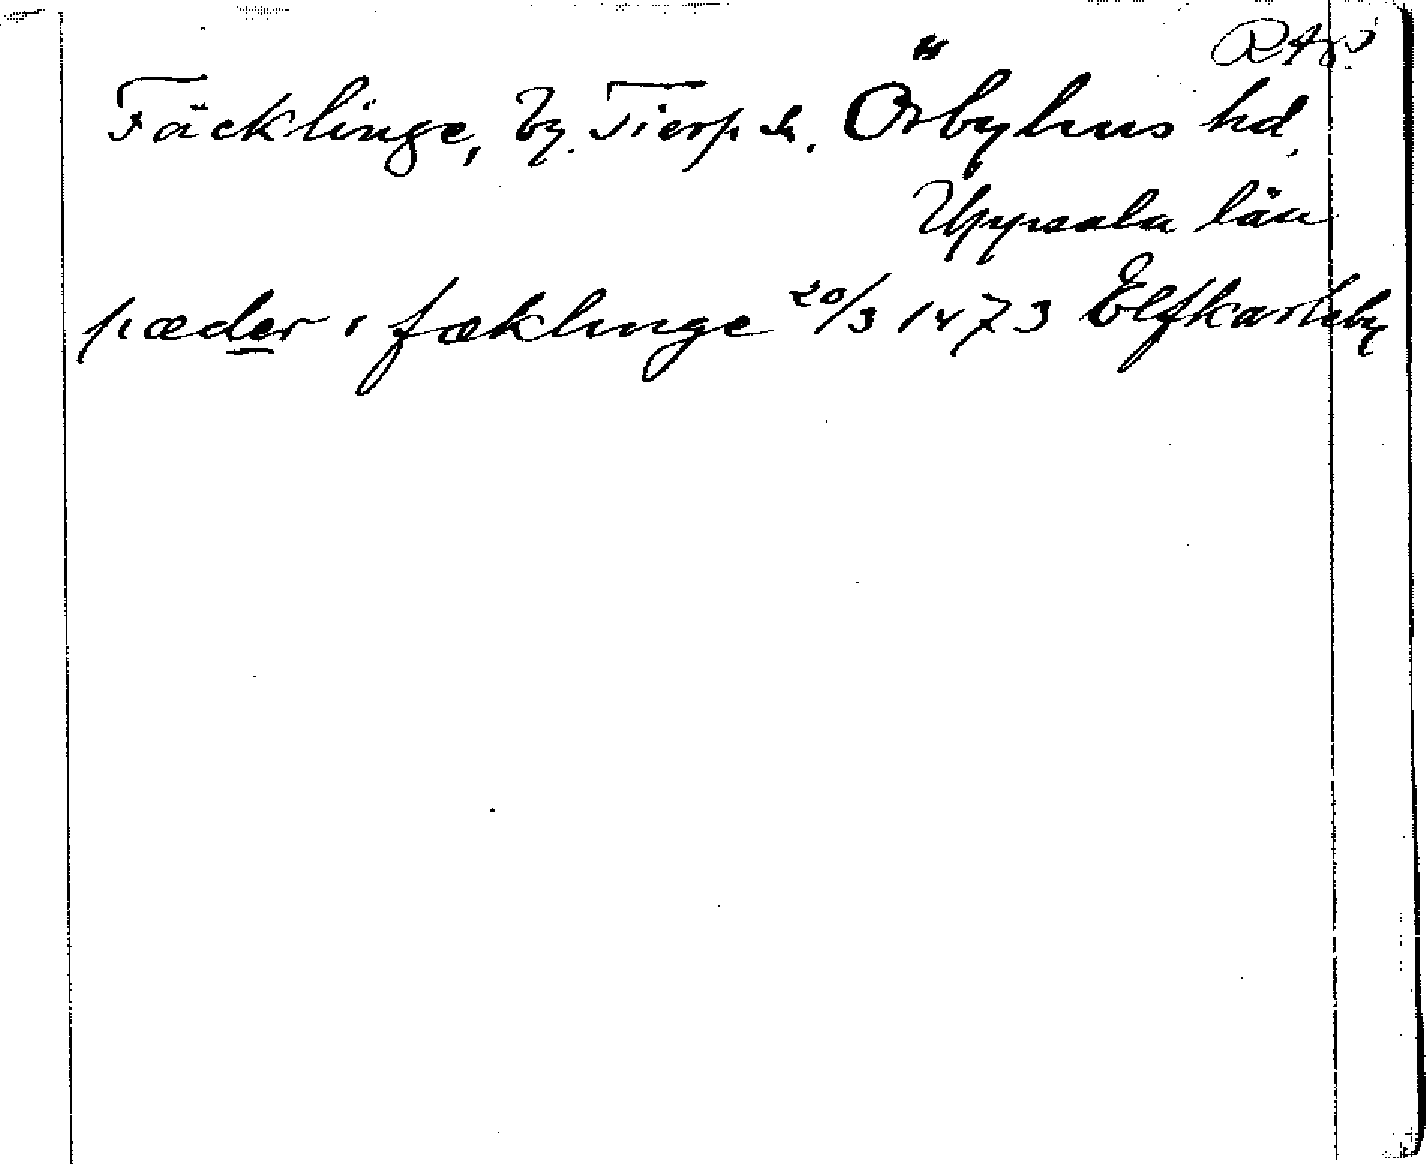 RAp.
Fäcklinge, by. Tierp sn. Örbyhus hd.
Uppsala län
pæder i fæklinge 20/3 1473 Elfkarleby